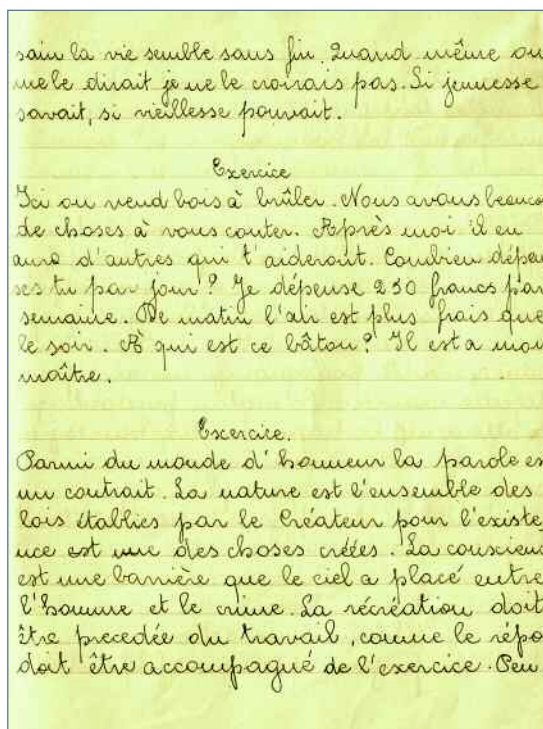 sain la vie semble sans fin. Quand même on
me le dirait je ne le croirais pas. Si jeunesse
savait, si vieillesse pouvait.
Exercice
Ici on vend bois à brûler. Nous avons beauco
de choses à vous conter. Après moi il en
aura d'autres qui t'aideront. Combien dépen
ses tu par jour? Je dépense 250 francs par
semaine. De matin l'air est plus frais que
le soir. À qui est ce bâton? Il est a mon
maître.
Excercice.
Parmi du monde d'honneur la parole es
un contrait. La nature est l'ensemble des
lois établies par le Créateur pour l'existe,
nce est une des choses créées. La conscienc
est une barrière que le ciel a placé entre
l'homme et le crime. La récréation doit
être precedée du travail, comme le répo
doit être accompagné de l'exercice. Peu